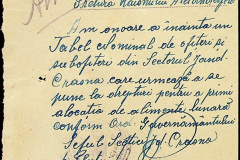 Pretura Raionului
Am onoare a înainta un
Tabel Nominal de ofițeri și
subofițeri din Sectorul Jand.
Crasna care urmează a se
pune la drepturi pentru a primi
alocația de alimente lunară
conform Ord. Guvernământului
Șeful Sectorului Jand. Crasna